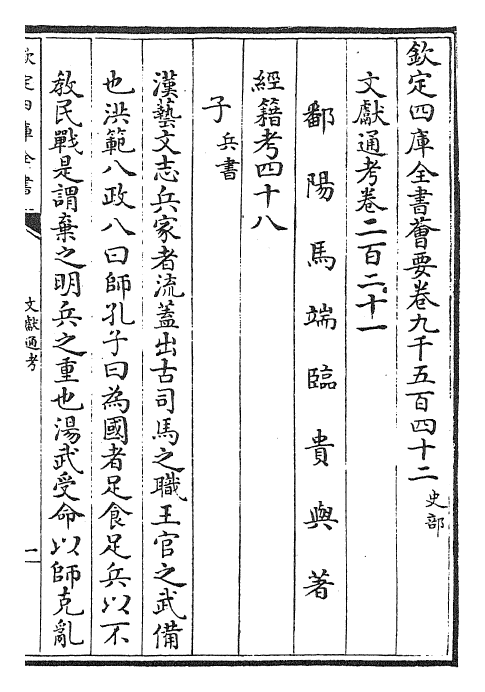 欽定四庫全書薈要卷九千五百四十二 史部
文獻通考卷二百二十一
鄱陽馬端臨貴與著
經籍考四十八
子 兵書
漢藝文志兵家者流蓋出古司馬之職王官之武備
也洪範八政八曰師孔子曰為國者足食足兵以不
教民戰是謂棄之明兵之重也湯武受命以師克亂
欽定四庫全書 文獻通考 一